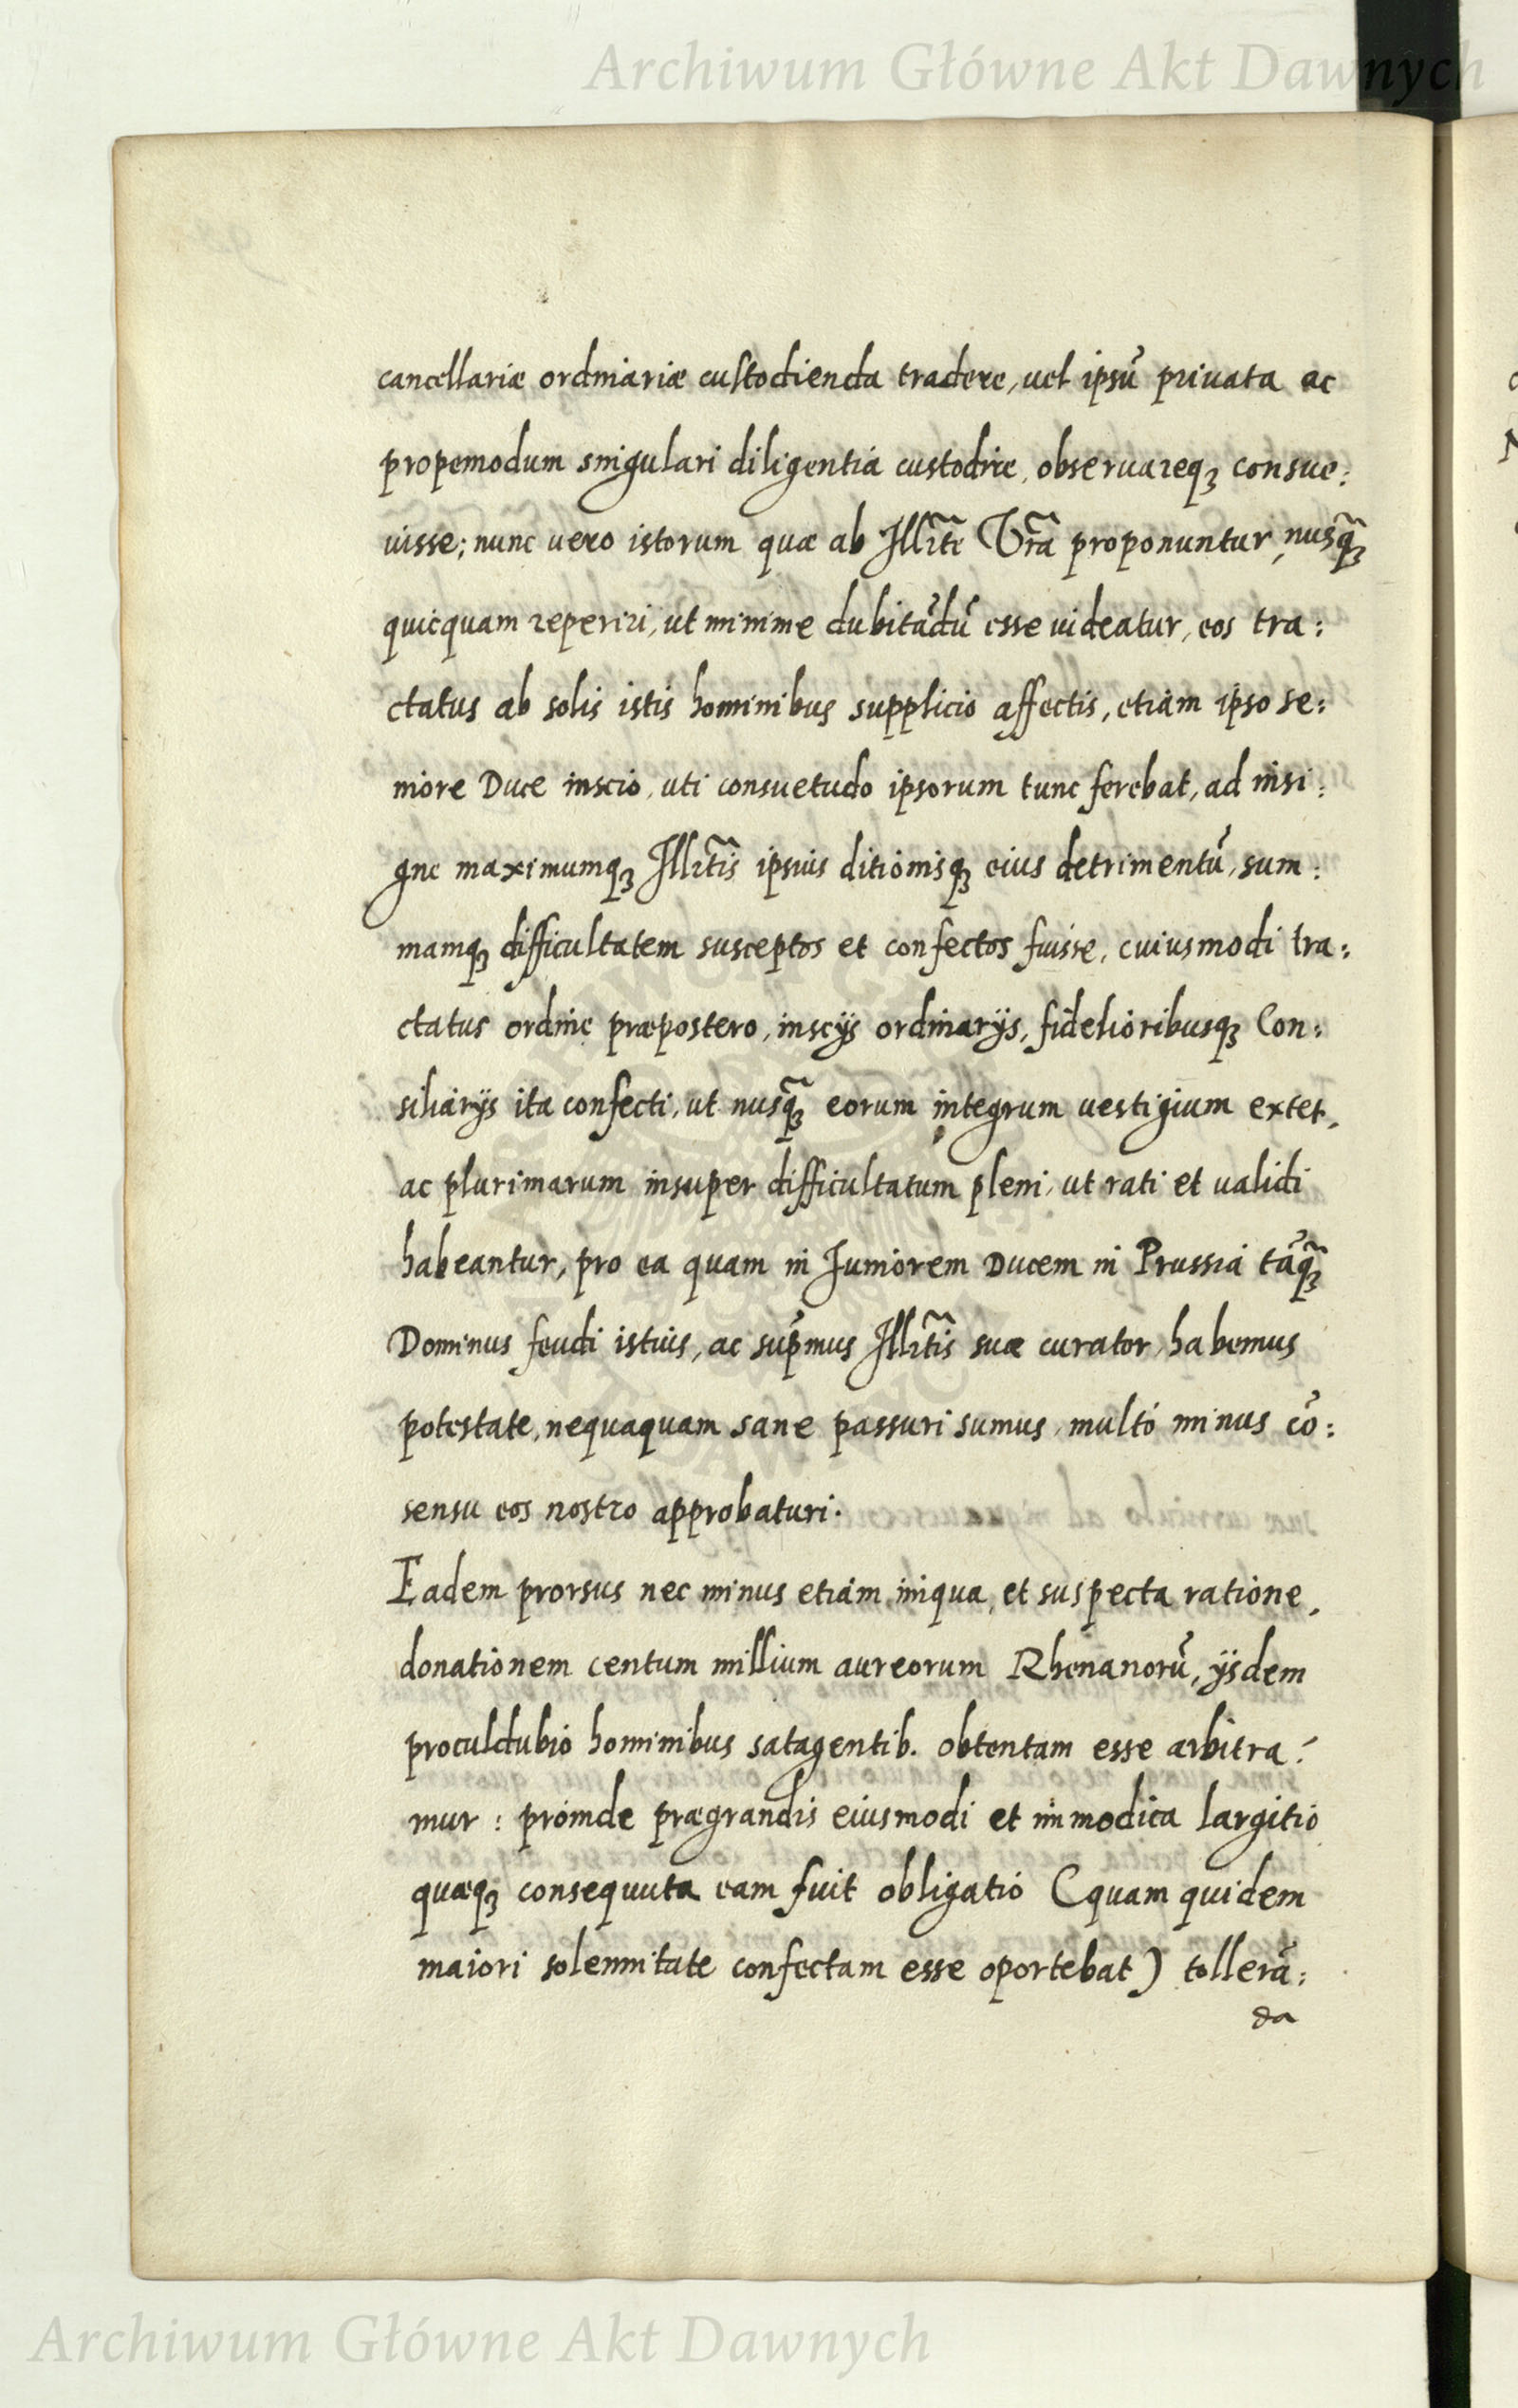 Archiwum Główne Akt Dawnych
cancellariæ ordinariæ custodienda tradere, uel ipsũ priuata ac
propemodum singulari diligentia custodire, obseruareqꝫ consue:
uisse; nunc uero istorum quæ ab Illr̃te Vr̃a proponuntur, nusq̃ꝫ
quicquam reperiri, ut minime dubitãdũ esse uideatur, eos tra:
ctatus ab solis istis hominibus supplicio affectis, etiam ipso se:
niore Duce inscio, uti consuetudo ipsorum tunc ferebat, ad insi:
gne maximumqꝫ Illr̃tis ipsius ditionisqꝫ eius detrimentũ, sum:
mamqꝫ difficultatem susceptos et confectos fuisse, cuiusmodi tra:
ctatus ordine præpostero, inscijs ordinarijs, fidelioribusqꝫ Con:
siliarijs ita confecti, ut nusq̃ꝫ eorum integrum uestigium extet,
ac plurimarum insuper difficultatum pleni, ut rati et ualidi
habeantur, pro ea quam in Juniorem Ducem in Prussia tãq̃ꝫ
Dominus feudi istius, ac sup̃mus Illr̃tis suæ curator habemus
potestate, nequaquam sane passuri sumus, multo minus cõ:
sensu eos nostro approbaturi.
Eadem prorsus nec minus etiam iniqua, et suspecta ratione,
donationem centum millium aureorum Rhenanorũ, ijsdem
proculdubio hominibus satagentib. obtentam esse arbitra:
mur: proinde prægrandis eiusmodi et immodica largitio
quæqꝫ consequuta eam fuit obligatio (quam quidem
maiori solennitate confectam esse oportebat) tollerã:
da
Archiwum Główne Akt Dawnych